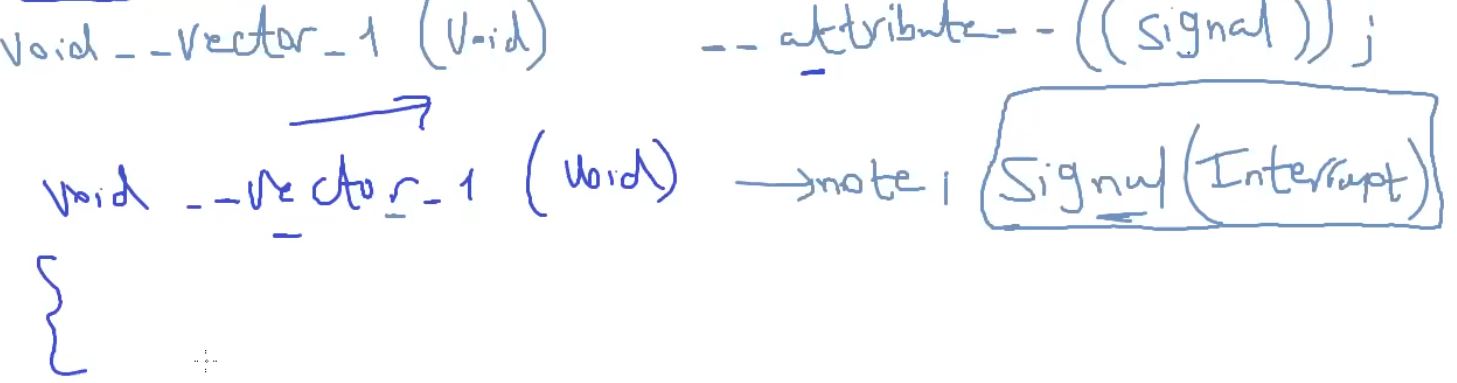 void __vector_1 (void) __attribute__((signal));
void __vector_1 (void) →note: Signal (Interrupt)
{